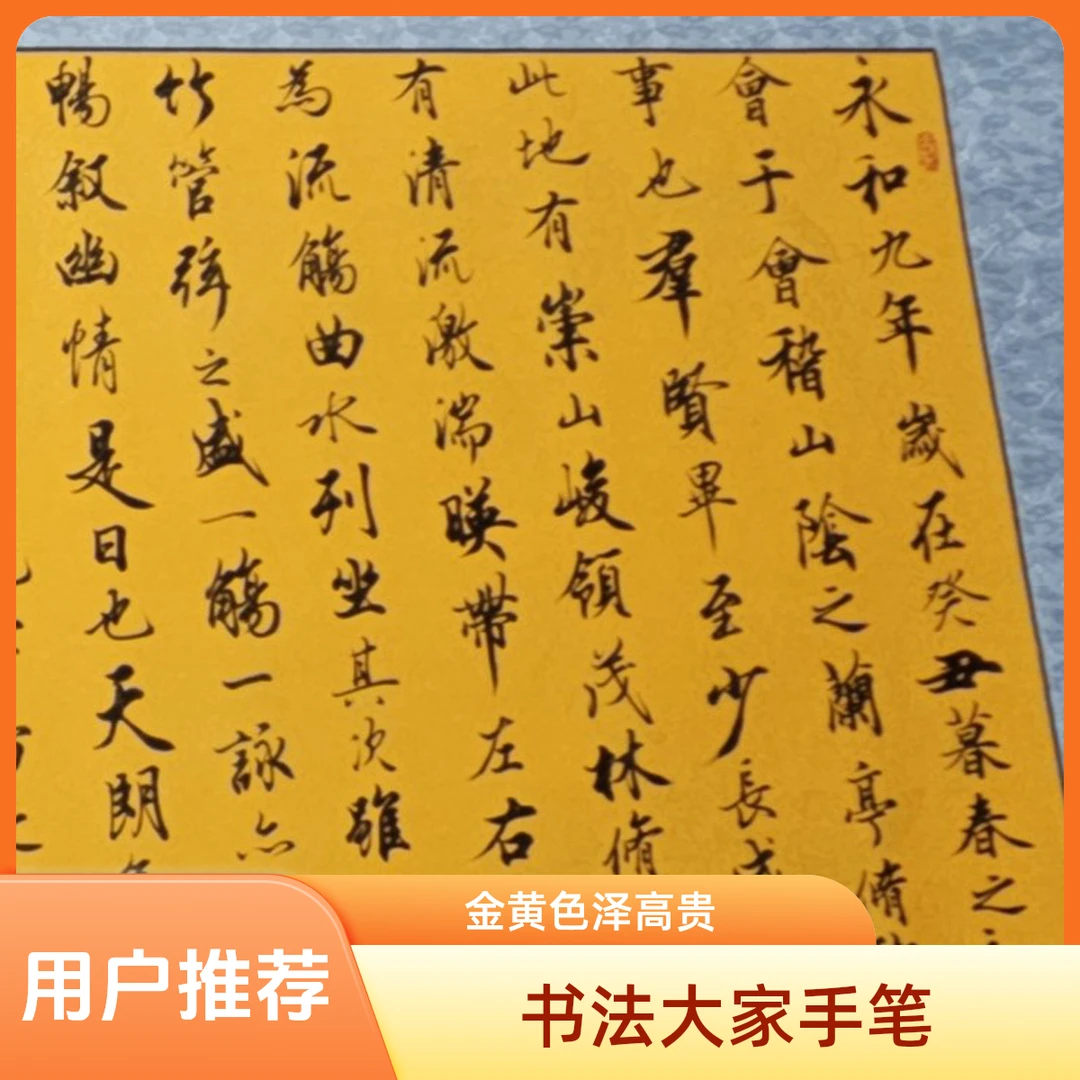 永和九年歲在癸丑暮春之
會于會稽山陰之蘭亭脩
事也羣賢畢至少長咸
此地有崇山峻領茂林脩
有清流激湍暎帶左右
為流觴曲水列坐其次雖
竹管弦之盛一觴一詠亦
暢敘幽情是日也天朗
金黄色泽高贵
用户推荐
书法大家手笔